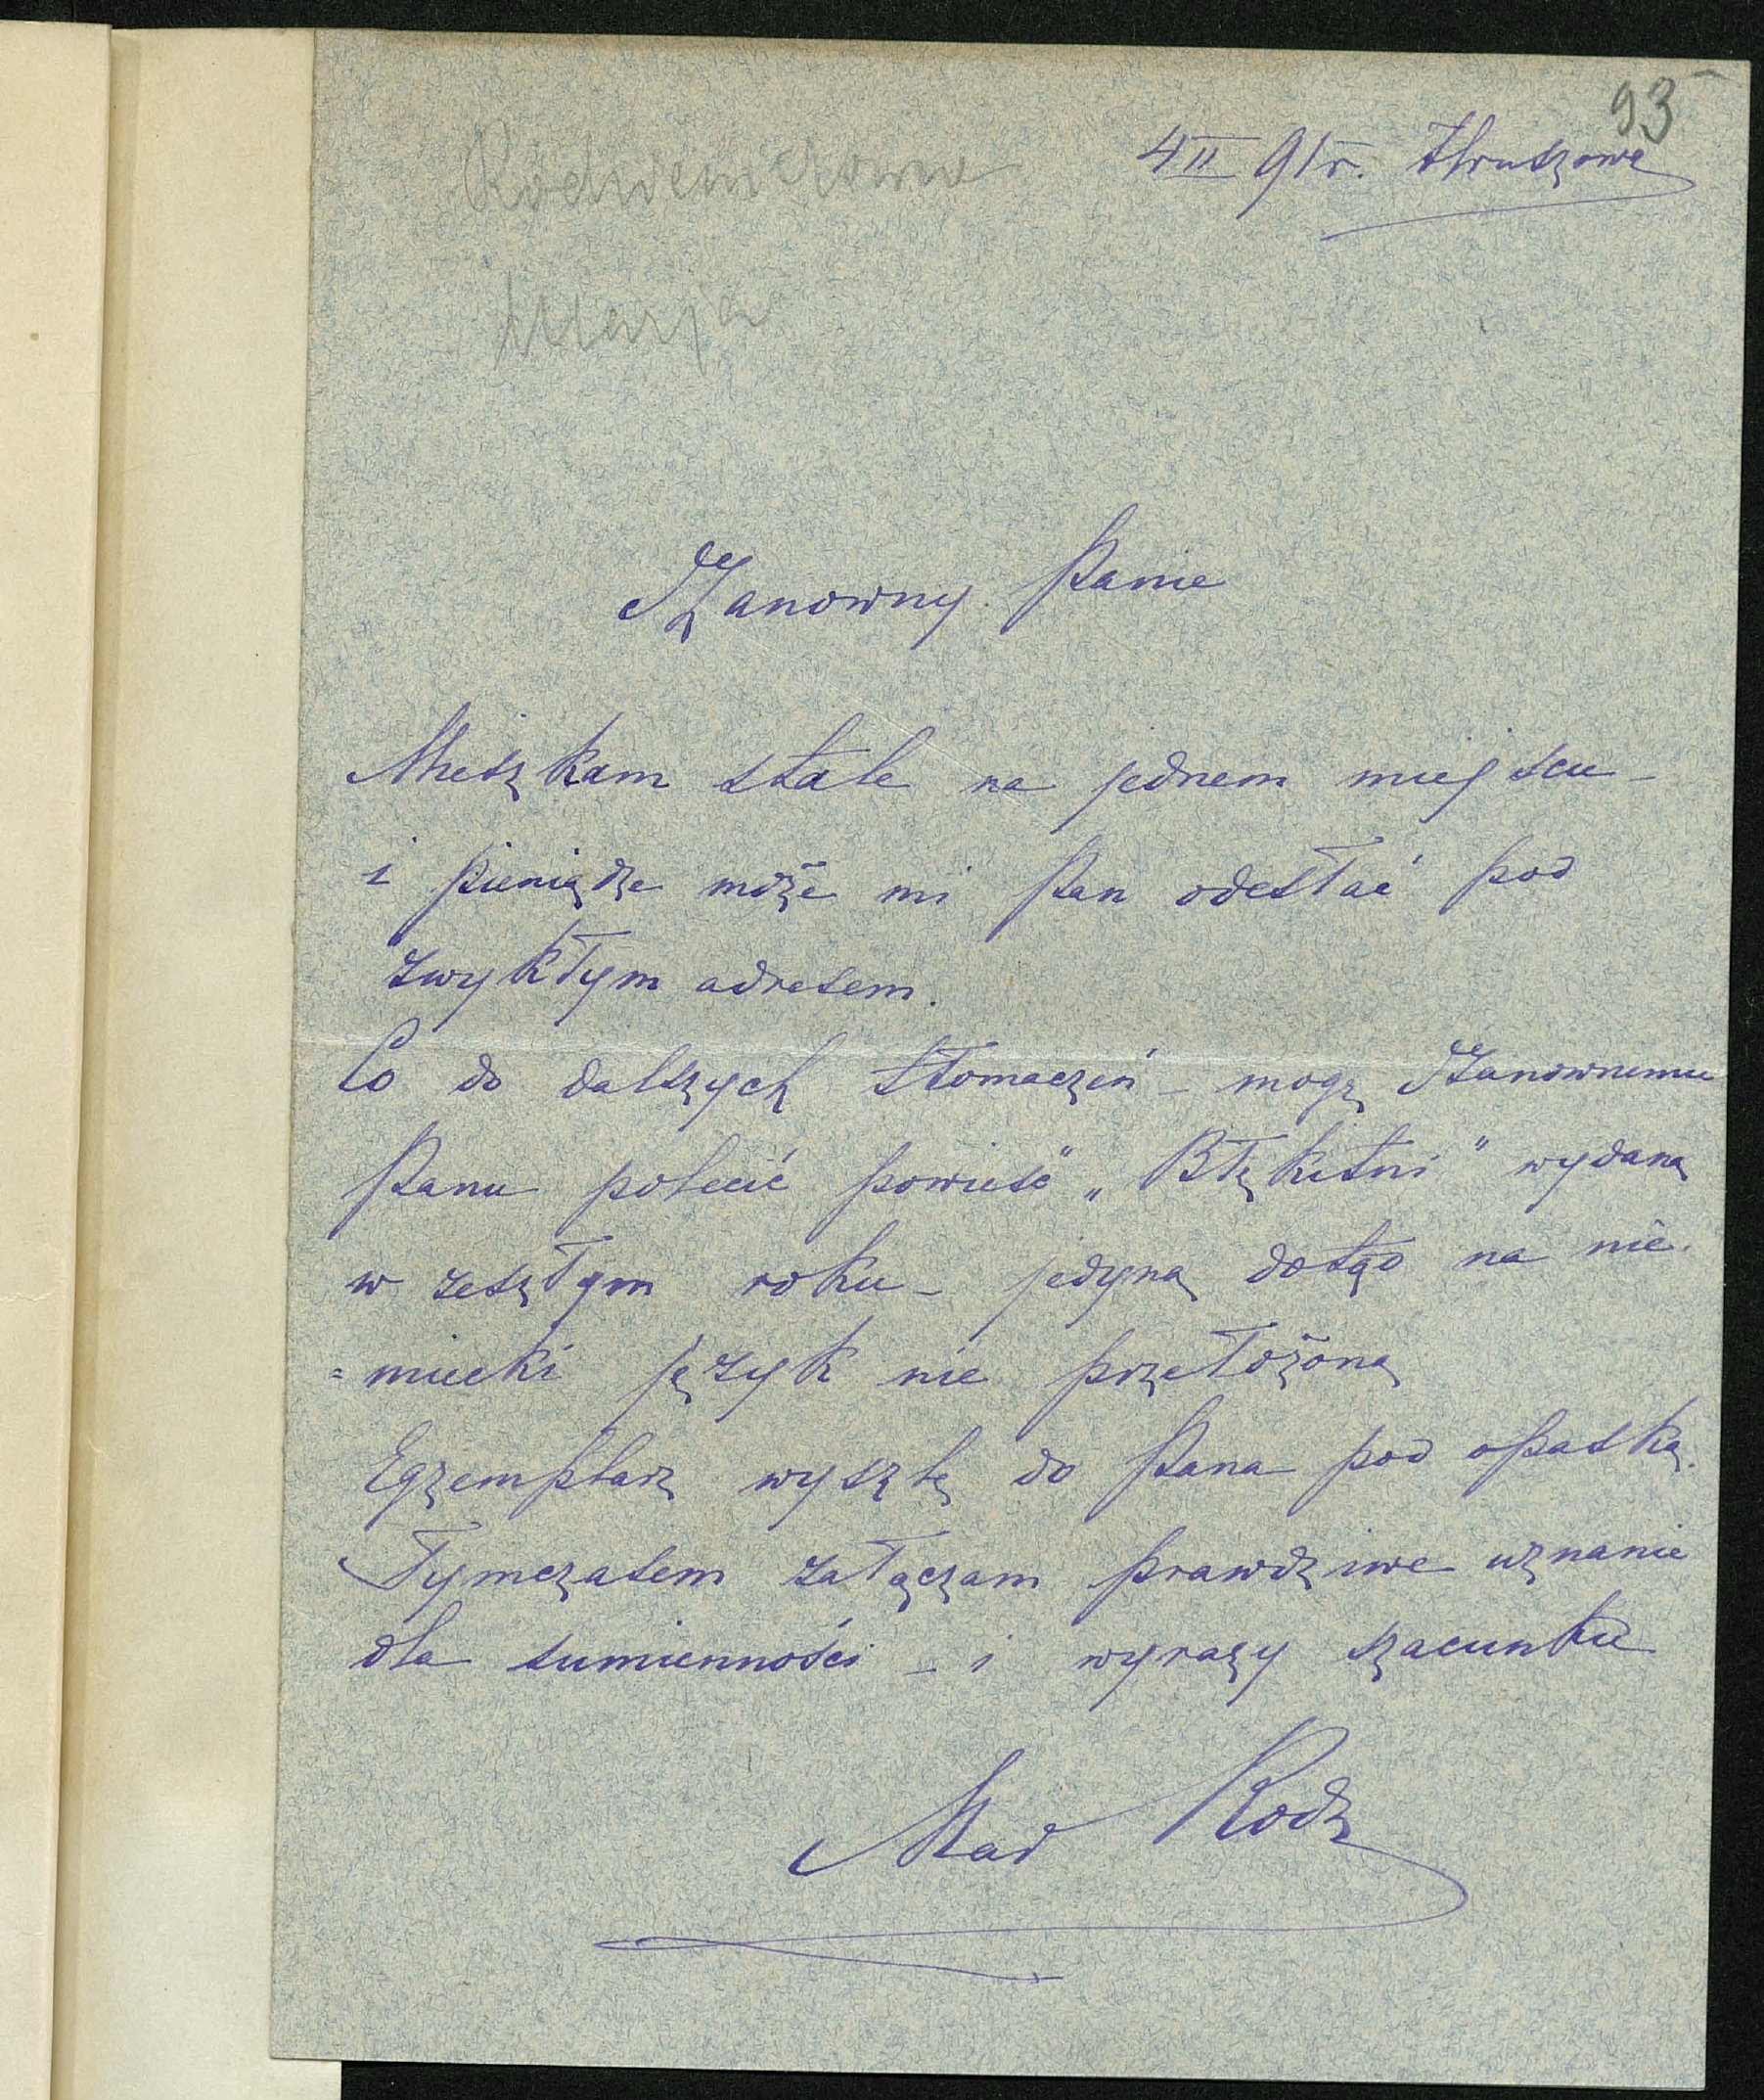 93
4 II 91 r. Hruszowa
Rodziewiczówna
Marja
Szanowny Panie
Mieszkam stale na jednem miejscu –
i pieniądze może mi Pan odesłać pod
zwykłym adresem.
Co do dalszych tłomaczeń – mogę Szanownemu
Panu polecić powieść „Błękitni" wydaną
w zeszłym roku – jedyną dotąd na nie-
=miecki język nie przełożoną
Egzemplarz wyszlę do Pana pod opaską.
Tymczasem załączam prawdziwe uznanie
dla sumienności – i wyrazy szacunku
Mar Rodz